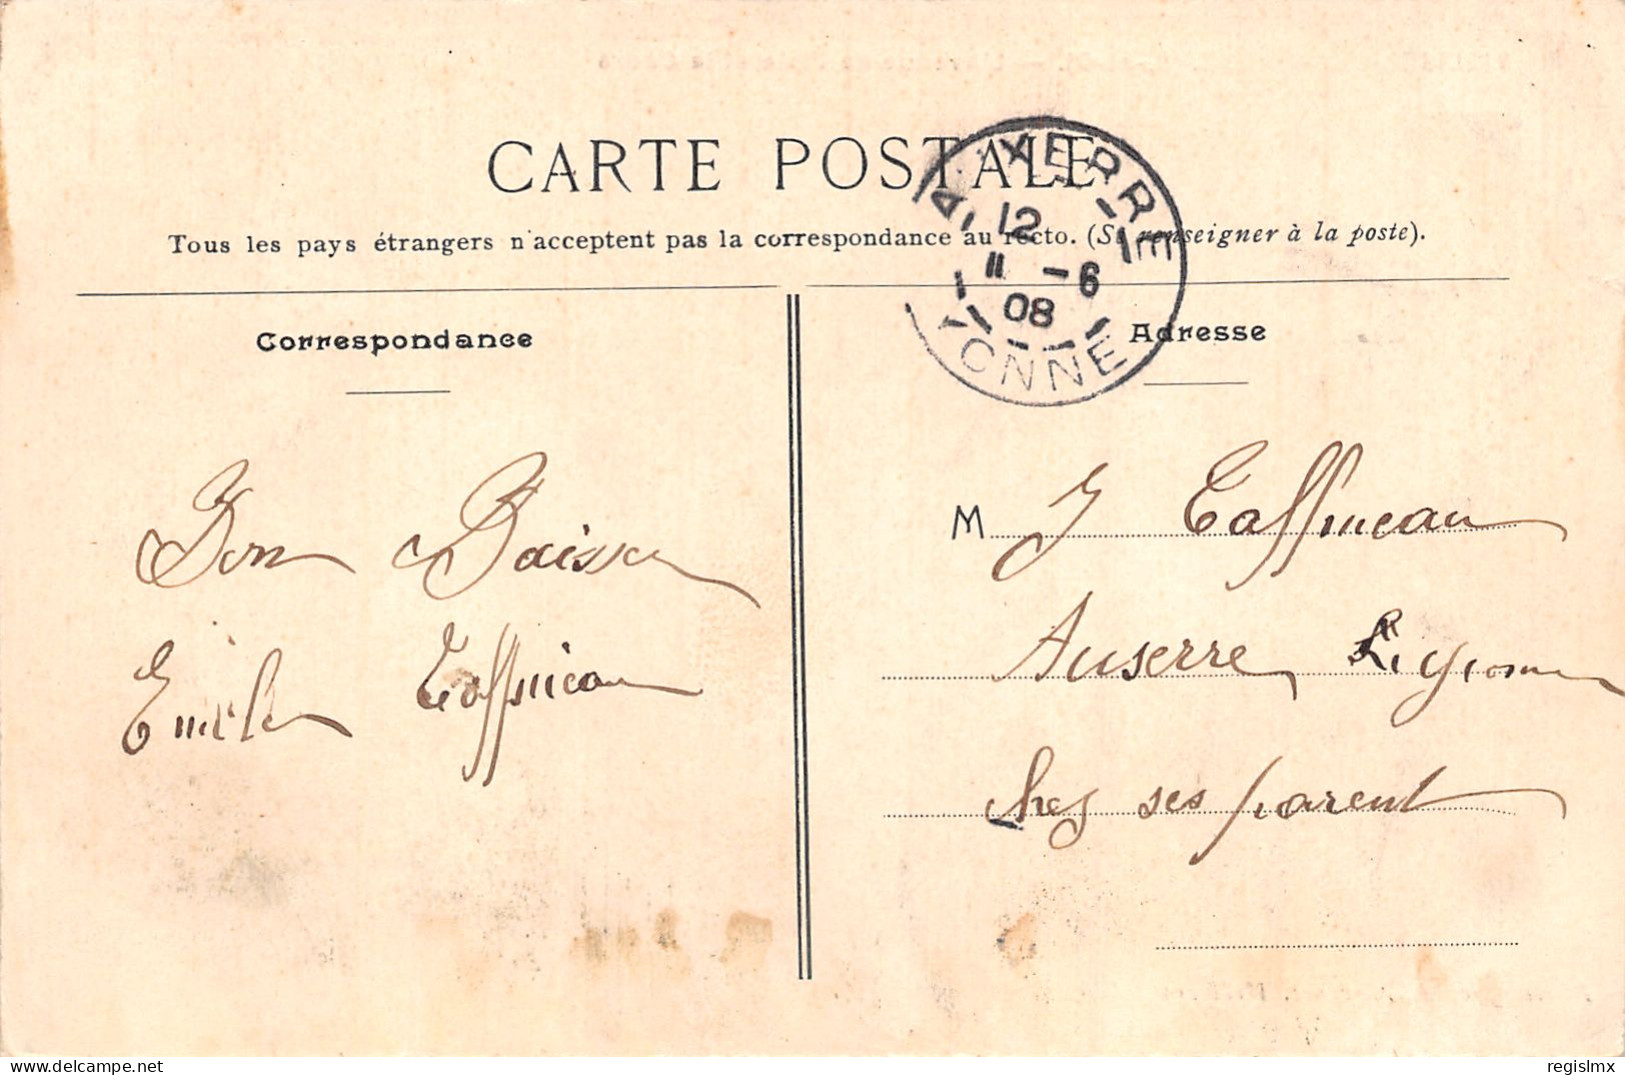 CARTE POSTALE
Tous les pays étrangers n'acceptent pas la correspondance au recto. (Se renseigner à la poste).
AUXERRE
12
11 -6
08
YONNE
Correspondance
Adresse
Bon Baiser
Emile Taffineau
M J Taffineau
Auserre
chez ses parent
regislmx